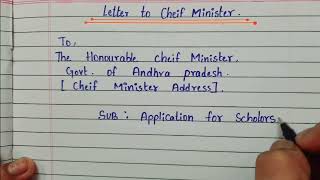 Letter to Cheif Minister.
To,
The Honourable cheif Minister,
Govt. of Andhra pradesh.
[Cheif Minister Address].
SUB : Application for Scholors